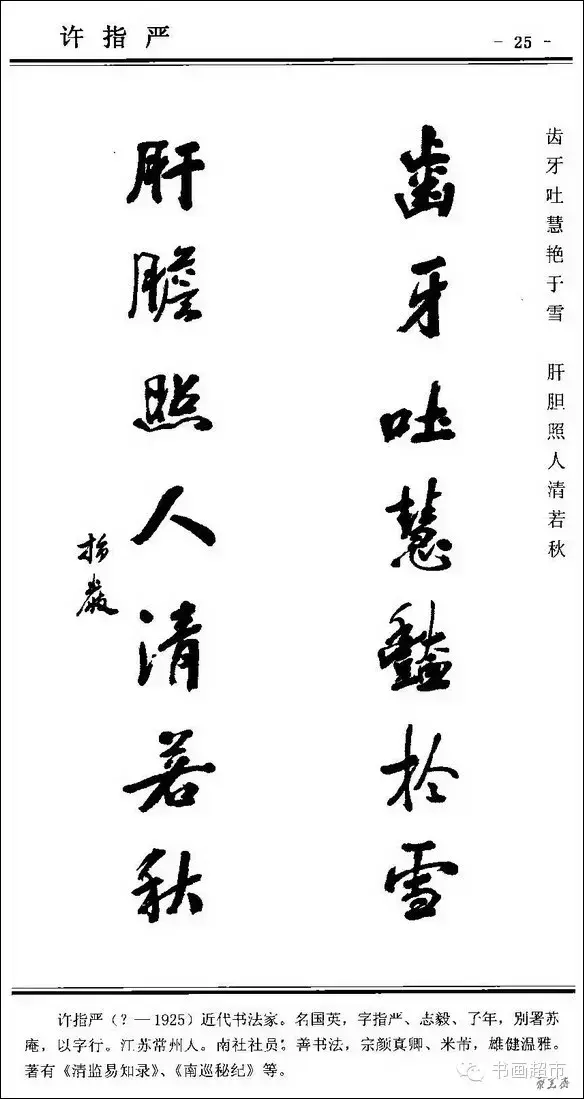 许指严
- 25 -
齿牙吐慧艳于雪 肝胆照人清若秋
齒牙吐慧豔於雪
肝膽照人清若秋
指嚴
许指严（？—1925）近代书法家。名国英，字指严、志毅、了年，别署苏
庵，以字行。江苏常州人。南社社员；善书法，宗颜真卿、米芾，雄健温雅。
著有《清监易知录》、《南巡秘纪》等。
书画超市